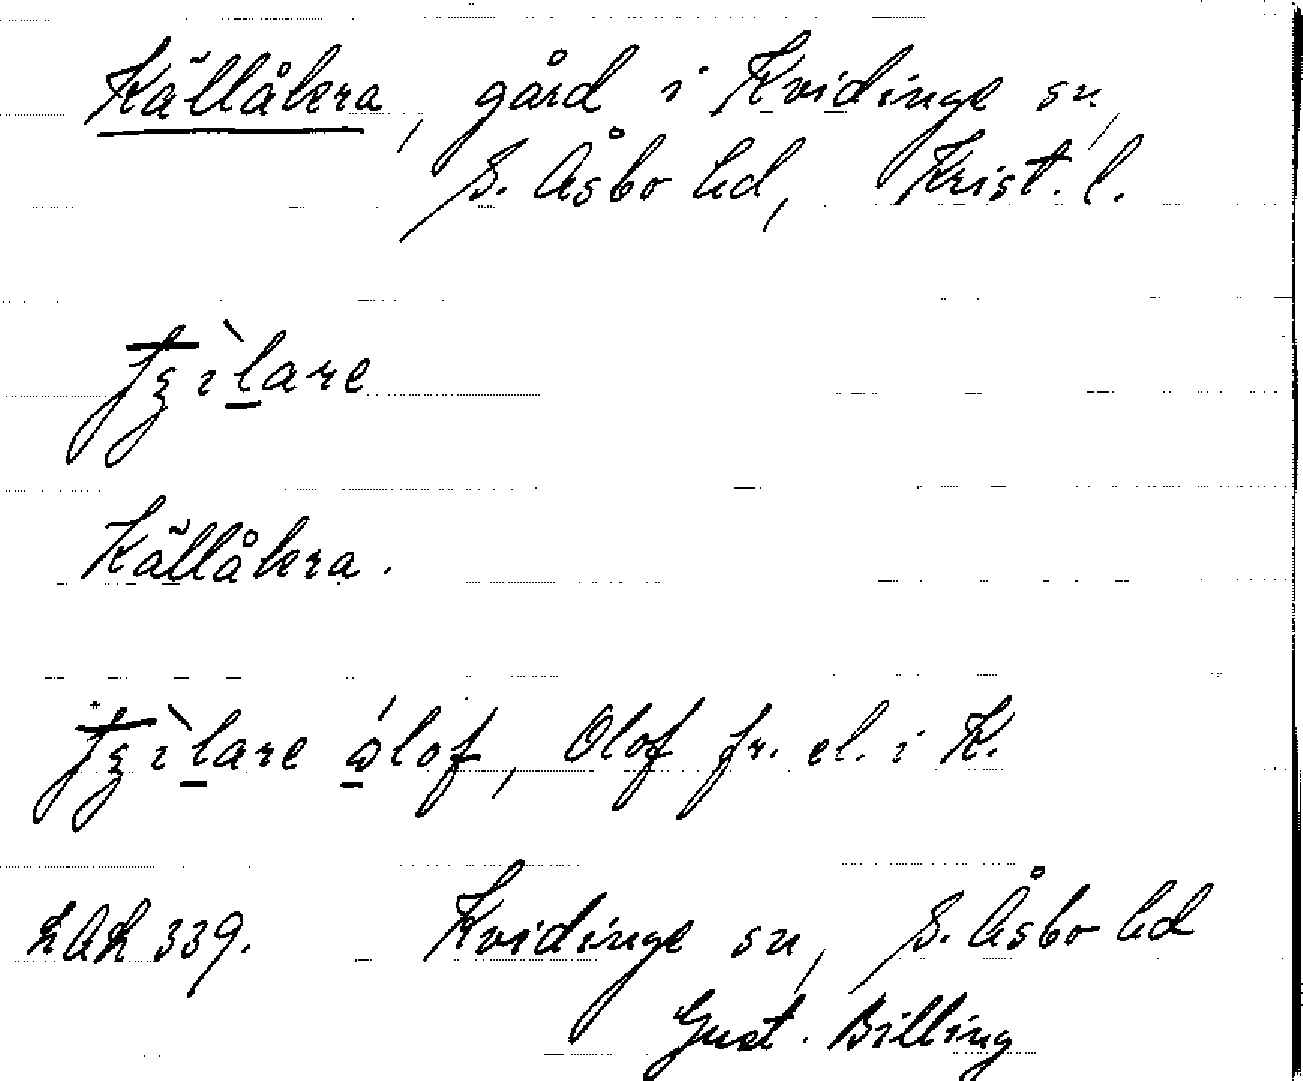 Källåkra, gård i Kvidinge sn,
S. Åsbo hd, Krist. l.
Källåkra.
Olof fr. el. i K.
LAL 339. Kvidinge sn, S. Åsbo hd
Gust. Billing